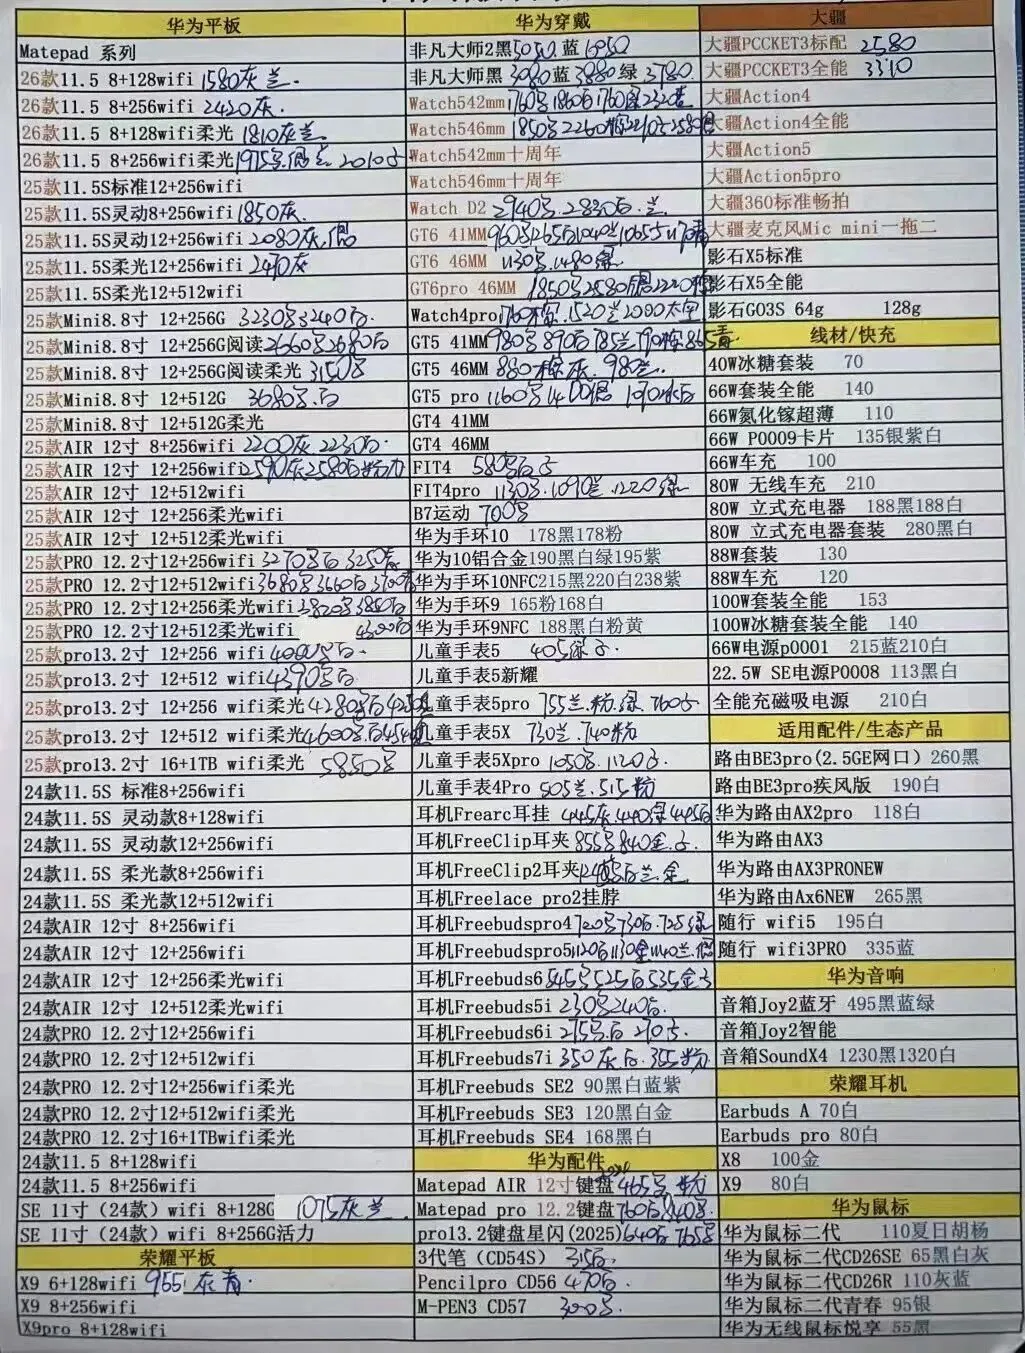 华为平板
Matepad 系列
26款11.5 8+128wifi 1580灰兰
26款11.5 8+256wifi 2420灰.
26款11.5 8+128wifi柔光 1810灰兰
26款11.5 8+256wifi柔光
25款11.5S标准12+256wifi
25款11.5S灵动8+256wifi 1850灰.
25款11.5S灵动12+256wifi 2080灰.
25款11.5S柔光12+256wifi 2470灰
25款11.5S柔光12+512wifi
25款Mini8.8寸 12+256G 3230 3240白.
25款Mini8.8寸 12+256G阅读 2660 2680白
25款Mini8.8寸 12+256G阅读柔光 3150
25款Mini8.8寸 12+512G 3680
25款Mini8.8寸 12+512G柔光
25款AIR 12寸 8+256wifi 2200灰 2230白
25款AIR 12寸 12+256wifi 2590灰 2580白
25款AIR 12寸 12+512wifi
25款AIR 12寸 12+256柔光wifi
25款AIR 12寸 12+512柔光wifi
25款PRO 12.2寸12+256wifi 3270 3250
25款PRO 12.2寸12+512wifi 3680 3660白 3700
25款PRO 12.2寸12+256柔光wifi 3850白
25款PRO 12.2寸12+512柔光wifi 4300白
25款pro13.2寸 12+256 wifi
25款pro13.2寸 12+512 wifi 4390
25款pro13.2寸 12+256 wifi 柔光 4280
25款pro13.2寸 12+512 wifi 柔光 4600
25款pro13.2寸 16+1TB wifi柔光 5850
24款11.5S 标准8+256wifi
24款11.5S 灵动款8+128wifi
24款11.5S 灵动款12+256wifi
24款11.5S 柔光款8+256wifi
24款11.5S 柔光款12+512wifi
24款AIR 12寸 8+256wifi
24款AIR 12寸 12+256wifi
24款AIR 12寸 12+256柔光wifi
24款AIR 12寸 12+512柔光wifi
24款PRO 12.2寸12+256wifi
24款PRO 12.2寸12+512wifi
24款PRO 12.2寸12+256wifi柔光
24款PRO 12.2寸12+512wifi柔光
24款PRO 12.2寸16+1TBwifi柔光
24款11.5 8+128wifi
24款11.5 8+256wifi
SE 11寸 (24款) wifi 8+128G 1075灰兰
SE 11寸 (24款) wifi 8+256G活力
荣耀平板
X9 6+128wifi 955 灰青.
X9 8+256wifi
X9pro 8+128wifi
华为穿戴
非凡大师2黑5050 蓝
非凡大师黑 3080蓝 3880绿 3780
Watch542mm 1760 1860白 1760 2320
Watch546mm 1850 2260
Watch542mm十周年
Watch546mm十周年
Watch D2 2940 2830白.兰
GT6 41MM 960
GT6 46MM 1130 1480绿.
GT6pro 46MM 1850 2580
Watch4pro 1760棕.1520兰
GT5 41MM 980 890白 785兰 790棕 865青
GT5 46MM 880棕灰. 985兰.
GT5 pro 1160 1400
GT4 41MM
GT4 46MM
FIT4 580
FIT4pro 1130.1090兰.1220绿
B7运动 700
华为手环10 178黑178粉
华为10铝合金190黑白绿195紫
华为手环10NFC215黑220白238紫
华为手环9 165粉168白
华为手环9NFC 188黑白粉黄
儿童手表5 405绿
儿童手表5新耀
儿童手表5pro 755兰.粉.绿 760
儿童手表5X 730兰.740粉
儿童手表5Xpro 1050.1120
儿童手表4Pro 505兰.515粉
耳机Frearc耳挂 445灰.440绿 445白
耳机FreeClip耳夹 855 840金.
耳机FreeClip2耳夹
耳机Freelace pro2挂脖
耳机Freebudspro4 720 730白.725绿
耳机Freebudspro5 1120白 1130金 1140兰.
耳机Freebuds6 545 525白 535金
耳机Freebuds5i 230 240白.
耳机Freebuds6i 275 270
耳机Freebuds7i 350灰.白.355粉
耳机Freebuds SE2 90黑白蓝紫
耳机Freebuds SE3 120黑白金
耳机Freebuds SE4 168黑白
华为配件
Matepad AIR 12寸键盘 465 粉
Matepad pro 12.2键盘 760白 840
pro13.2键盘星闪(2025) 640白 765
3代笔 (CD54S) 315白.
Pencilpro CD56 470白
M-PEN3 CD57 300
大疆
大疆PCCKET3标配 2580
大疆PCCKET3全能 3310
大疆Action4
大疆Action4全能
大疆Action5
大疆Action5pro
大疆360标准畅拍
大疆麦克风Mic mini一拖二
影石X5标准
影石X5全能
影石GO3S 64g 128g
线材/快充
40W冰糖套装 70
66W套装全能 140
66W氮化镓超薄 110
66W P0009卡片 135银紫白
66W车充 100
80W 无线车充 210
80W 立式充电器 188黑188白
80W 立式充电器套装 280黑白
88W套装 130
88W车充 120
100W套装全能 153
100W冰糖套装全能 140
66W电源p0001 215蓝210白
22.5W SE电源P0008 113黑白
全能充磁吸电源 210白
适用配件/生态产品
路由BE3pro(2.5GE网口) 260黑
路由BE3pro疾风版 190白
华为路由AX2pro 118白
华为路由AX3
华为路由AX3PRONEW
华为路由Ax6NEW 265黑
随行 wifi5 195白
随行 wifi3PRO 335蓝
华为音响
音箱Joy2蓝牙 495黑蓝绿
音箱Joy2智能
音箱SoundX4 1230黑1320白
荣耀耳机
Earbuds A 70白
Earbuds pro 80白
X8 100金
X9 80白
华为鼠标
华为鼠标二代 110夏日胡杨
华为鼠标二代CD26SE 65黑白灰
华为鼠标二代CD26R 110灰蓝
华为鼠标二代青春 95银
华为无线鼠标悦享 55黑